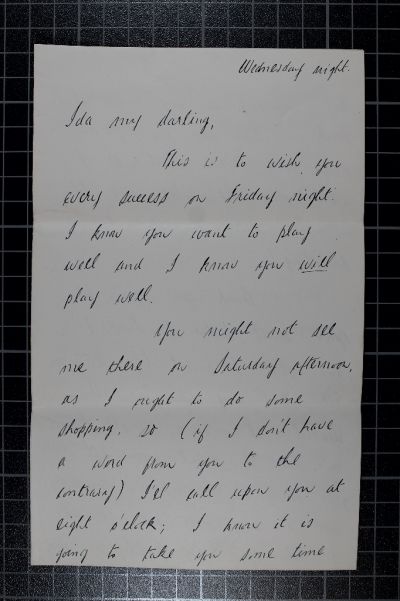 Wednesday night.
Ida my darling,
This is to wish you
every success on Friday night.
I know you want to play
well and I know you will
play well.
You might not see
me there on Saturday afternoon,
as I ought to do some
shopping, so (if I don't have
a word from you to the
contrary) I'll call upon you at
eight o'clock; I know it is
going to take you some time